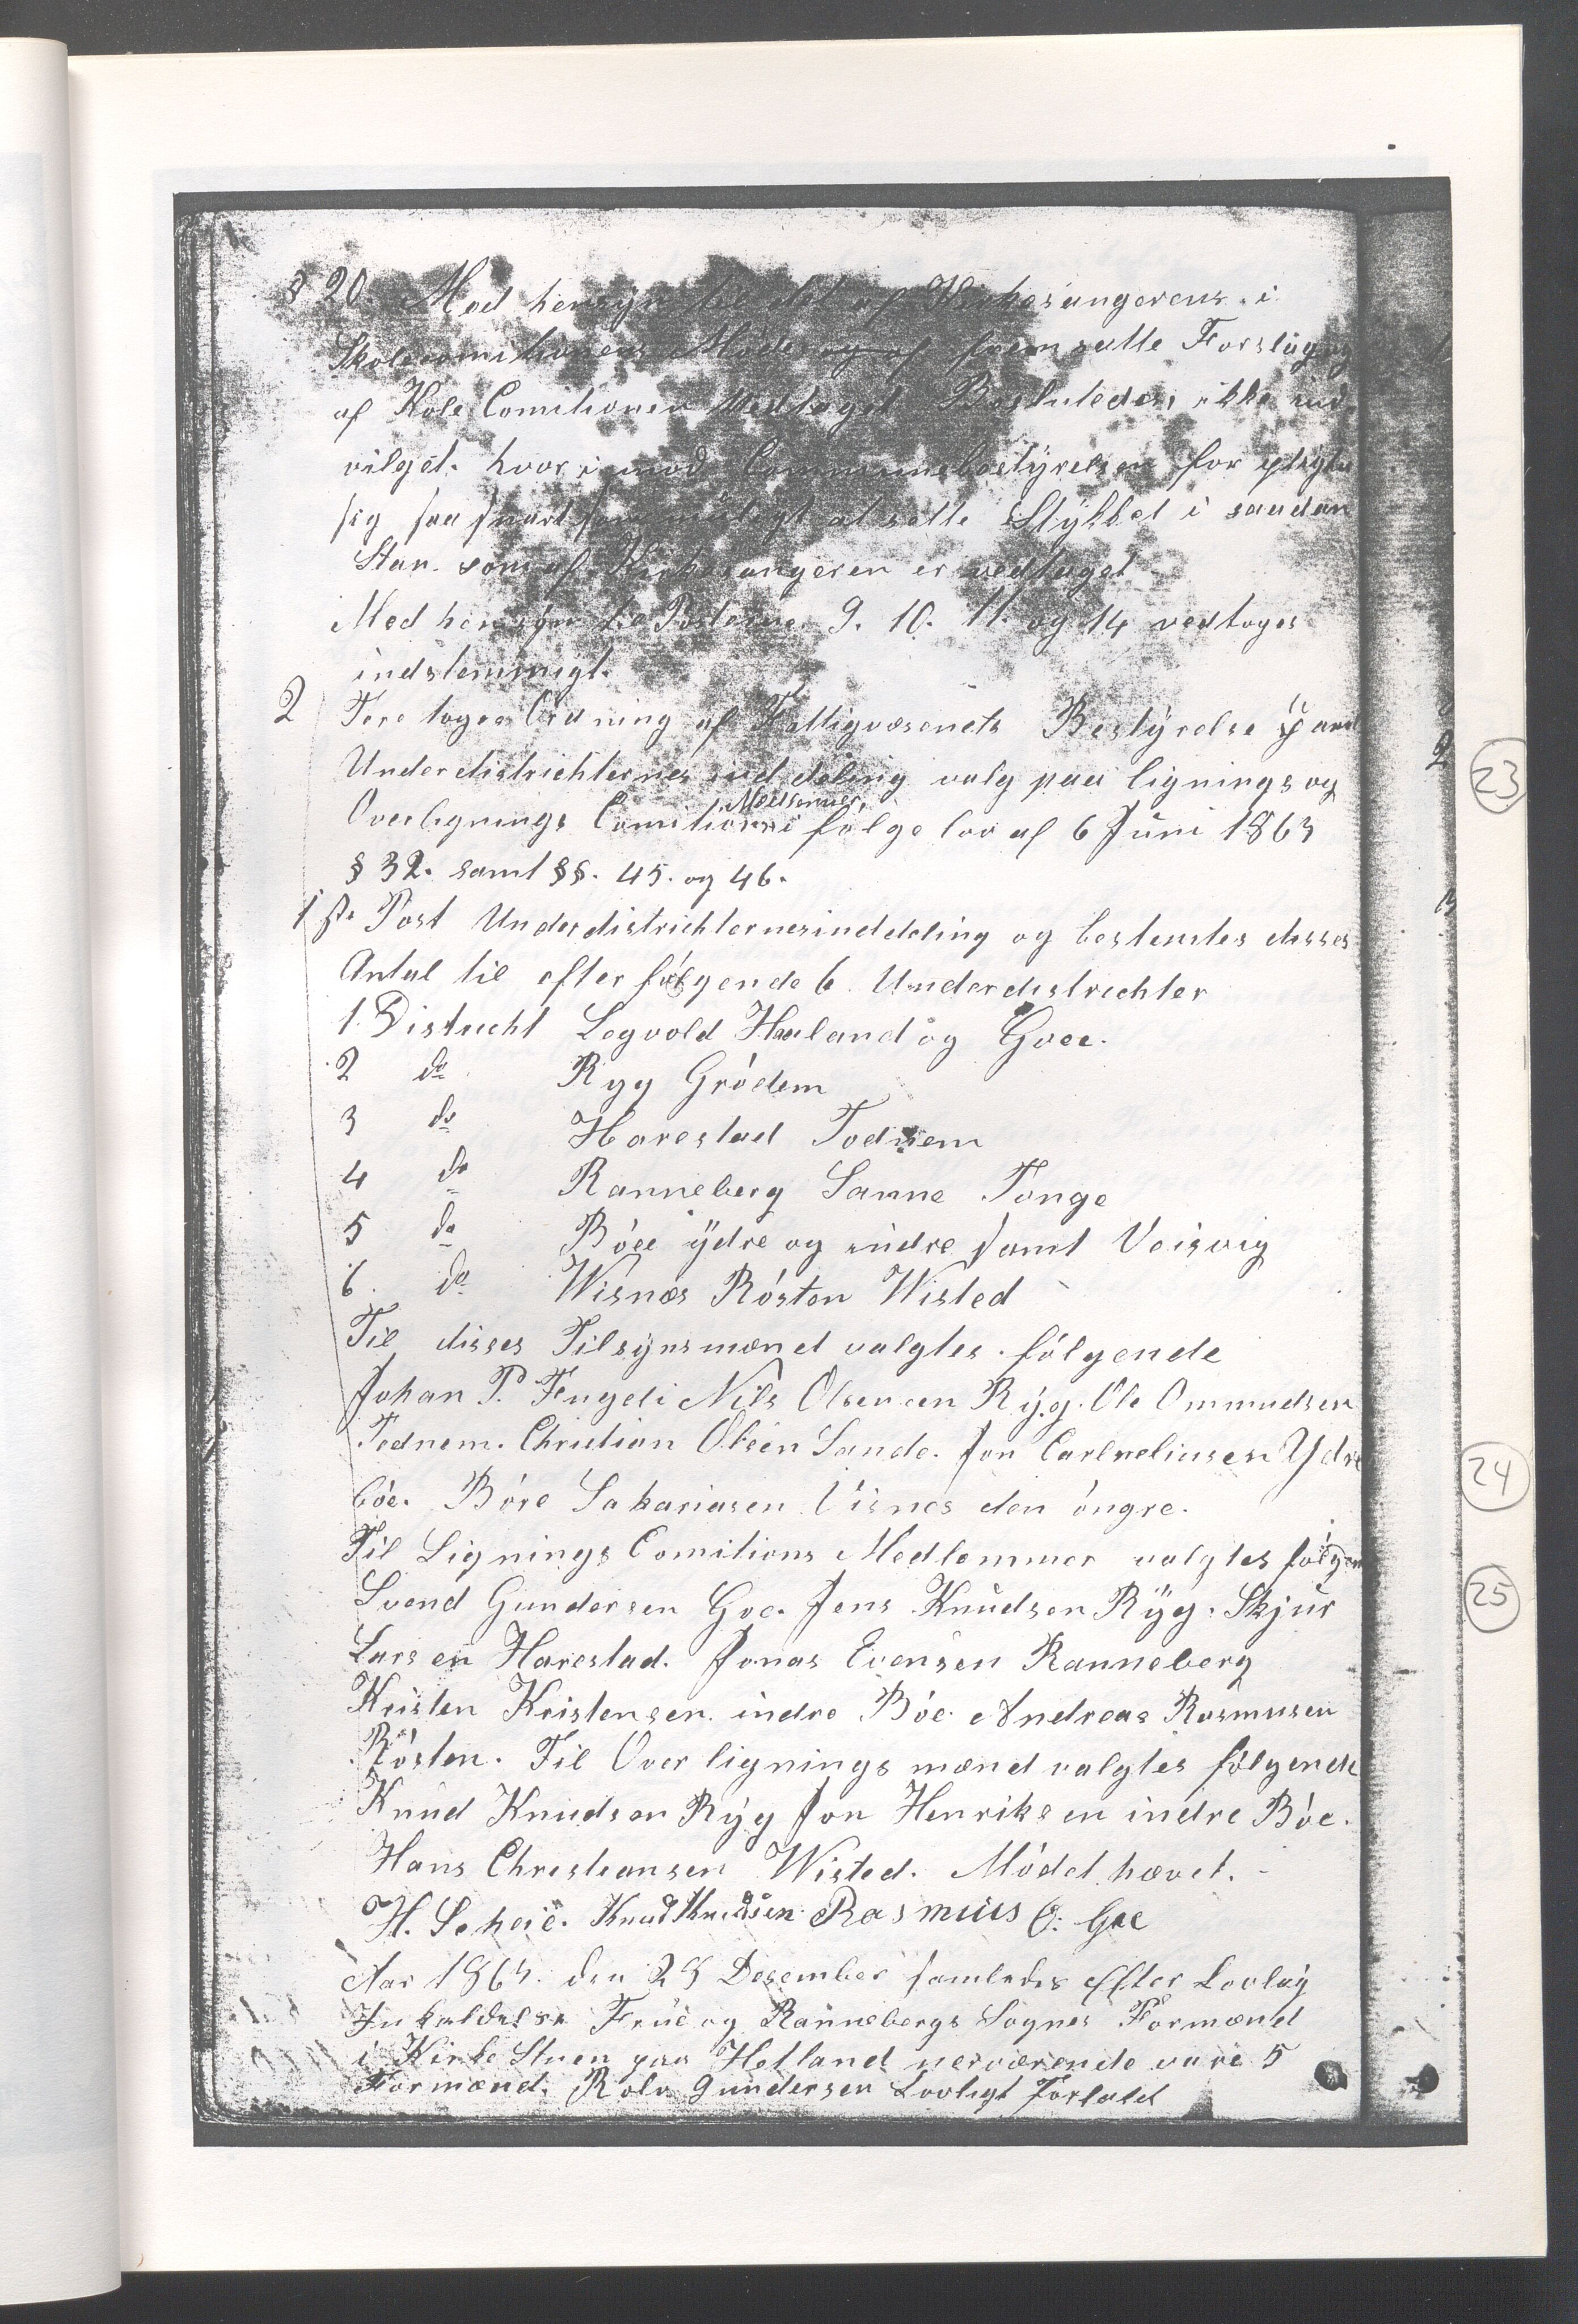 § 20. Med hensyn til det af Kirkesangerens i
Skolecomitionens Møde og af fremsatte Forslag og
af Kole Comitionen Vedtaget Beslutedes ikke ind-
vilget. hvor i mod Communebestyrelsen for pligte
sig saa snart som muligt at sette Stykket i saadan
Stan. som af Kirkesangeren er vedtaget
Med hensyn til Posterne 9. 10. 11. og 14 vedtoges
indstemmigt.
2 Fore toges Ordning af Fattigvæsenets Bestyrelse
Underdistrichternes inddeling valg paa lignings og
Overlignings Comitions Medlemmer i følge lov af 6 Juni 1863
§ 32. samt §§. 45. og 46.
1ste Post Underdistrichternesinddeling og bestemtes disses
Antal til efter følgende 6 Underdistrichter
1. Districht Legvold Haaland og Goee.
2 do Ryg Grødem
3 do Harestad Todnem
4 do Ranneberg Sanne Tonge
5 do Bøee ydre og indre samt Veisvig
6. do Wisnæs Røsten Wisted
Til disses Tilsynsmænd valgtes følgende
Johan P. Nils Olsen Ryg. Ole Ommundsen
Todnem. Christian Olsen Sande. Jon Carlneliusen Ydre
bøe. Børe Sakariasen Visnes den øngre.
Til Lignings Comitions Medlemmer valgtes følgen
Svend Gundersen Goe. Jens Knudsen Ryg. Skjur
Larsen Harestad. Jonas Evensen Ranneberg
Kristen Kristensen indre Bøe Andreas Rasmusen
Røsten. Til Over lignings mænd valgtes følgende
Knud Knudsen Ryg Jon Henriksen indre Bøe.
Hans Christiansen Wisted. Mødet hævet.
H. Scheie. Knud Knudsen Rasmus O: Goe
Aar 1864. den 29 Desember samledes efter Lovlig
Inkaldelse Frue og Rannebergs Sognes Formænd
i Kirke Stuen paa Hetland nerværende vare 5
Formænd. Rolv Gundersen Lovligt Forfald
23
24
25